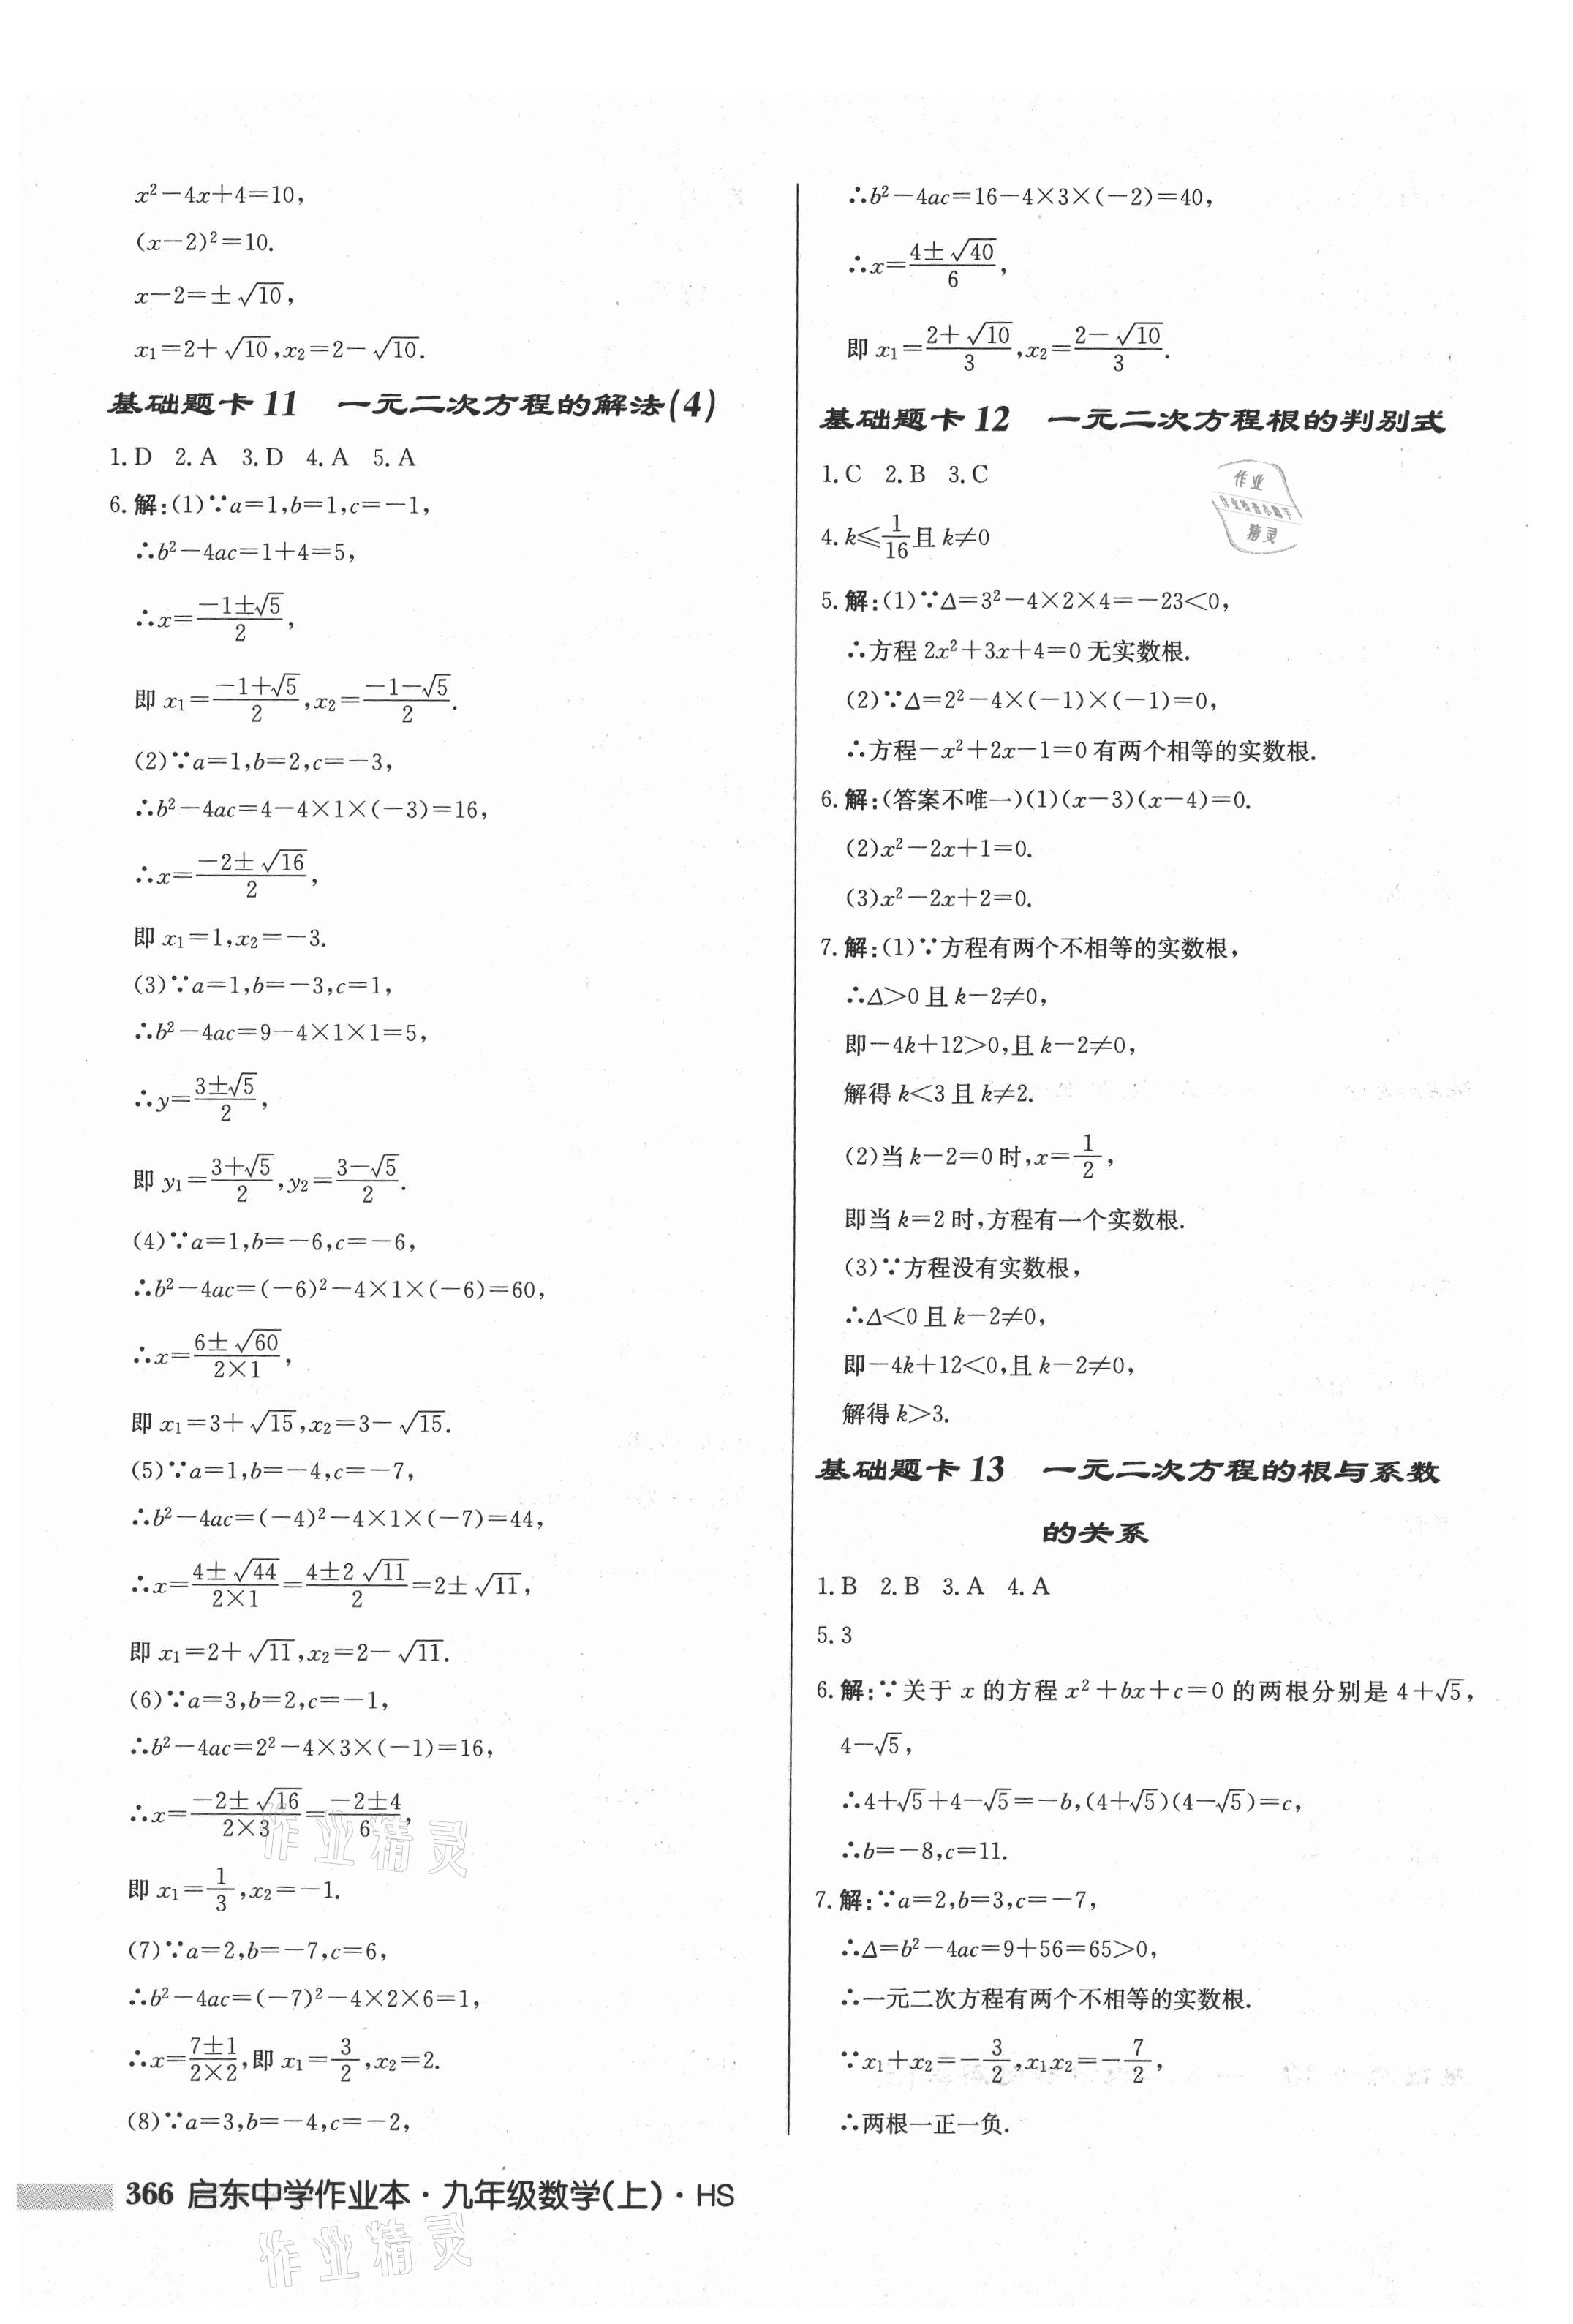 x²-4x+4=10,
(x-2)²=10.
x-2=±√10,
x₁=2+√10,x₂=2-√10.
基础题卡 11 一元二次方程的解法(4)
1.D 2.A 3.D 4.A 5.A
6.解:(1)∵a=1,b=1,c=-1,
∴b²-4ac=1+4=5,
∴x=(-1±√5)/2,
即 x₁=(-1+√5)/2,x₂=(-1-√5)/2.
(2)∵a=1,b=2,c=-3,
∴b²-4ac=4-4×1×(-3)=16,
∴x=(-2±√16)/2,
即 x₁=1,x₂=-3.
(3)∵a=1,b=-3,c=1,
∴b²-4ac=9-4×1×1=5,
∴y=(3±√5)/2,
即 y₁=(3+√5)/2,y₂=(3-√5)/2.
(4)∵a=1,b=-6,c=-6,
∴b²-4ac=(-6)²-4×1×(-6)=60,
∴x=(6±√60)/(2×1),
即 x₁=3+√15,x₂=3-√15.
(5)∵a=1,b=-4,c=-7,
∴b²-4ac=(-4)²-4×1×(-7)=44,
∴x=(4±√44)/(2×1)=(4±2√11)/2=2±√11,
即 x₁=2+√11,x₂=2-√11.
(6)∵a=3,b=2,c=-1,
∴b²-4ac=2²-4×3×(-1)=16,
∴x=(-2±√16)/(2×3)=(-2±4)/6,
即 x₁=1/3,x₂=-1.
(7)∵a=2,b=-7,c=6,
∴b²-4ac=(-7)²-4×2×6=1,
∴x=(7±1)/(2×2),即 x₁=3/2,x₂=2.
(8)∵a=3,b=-4,c=-2,
∴b²-4ac=16-4×3×(-2)=40,
∴x=(4±√40)/6,
即 x₁=(2+√10)/3,x₂=(2-√10)/3.
基础题卡 12 一元二次方程根的判别式
1.C 2.B 3.C
4.k≤1/16且 k≠0
5.解:(1)∵Δ=3²-4×2×4=-23<0,
∴方程 2x²+3x+4=0 无实数根.
(2)∵Δ=2²-4×(-1)×(-1)=0,
∴方程-x²+2x-1=0 有两个相等的实数根.
6.解:(答案不唯一)(1)(x-3)(x-4)=0.
(2)x²-2x+1=0.
(3)x²-2x+2=0.
7.解:(1)∵方程有两个不相等的实数根,
∴Δ>0 且 k-2≠0,
即-4k+12>0,且 k-2≠0,
解得 k<3 且 k≠2.
(2)当 k-2=0 时,x=1/2,
即当 k=2 时,方程有一个实数根.
(3)∵方程没有实数根,
∴Δ<0 且 k-2≠0,
即-4k+12<0,且 k-2≠0,
解得 k>3.
基础题卡 13 一元二次方程的根与系数
的关系
1.B 2.B 3.A 4.A
5.3
6.解:∵关于 x 的方程 x²+bx+c=0 的两根分别是 4+√5,
4-√5,
∴4+√5+4-√5=-b,(4+√5)(4-√5)=c,
∴b=-8,c=11.
7.解:∵a=2,b=3,c=-7,
∴Δ=b²-4ac=9+56=65>0,
∴一元二次方程有两个不相等的实数根.
∵x₁+x₂=-3/2,x₁x₂=-7/2,
∴两根一正一负.
作业
作业检查小助手
精灵
作业精灵
366 启东中学作业本·九年级数学(上)·HS
作业精灵